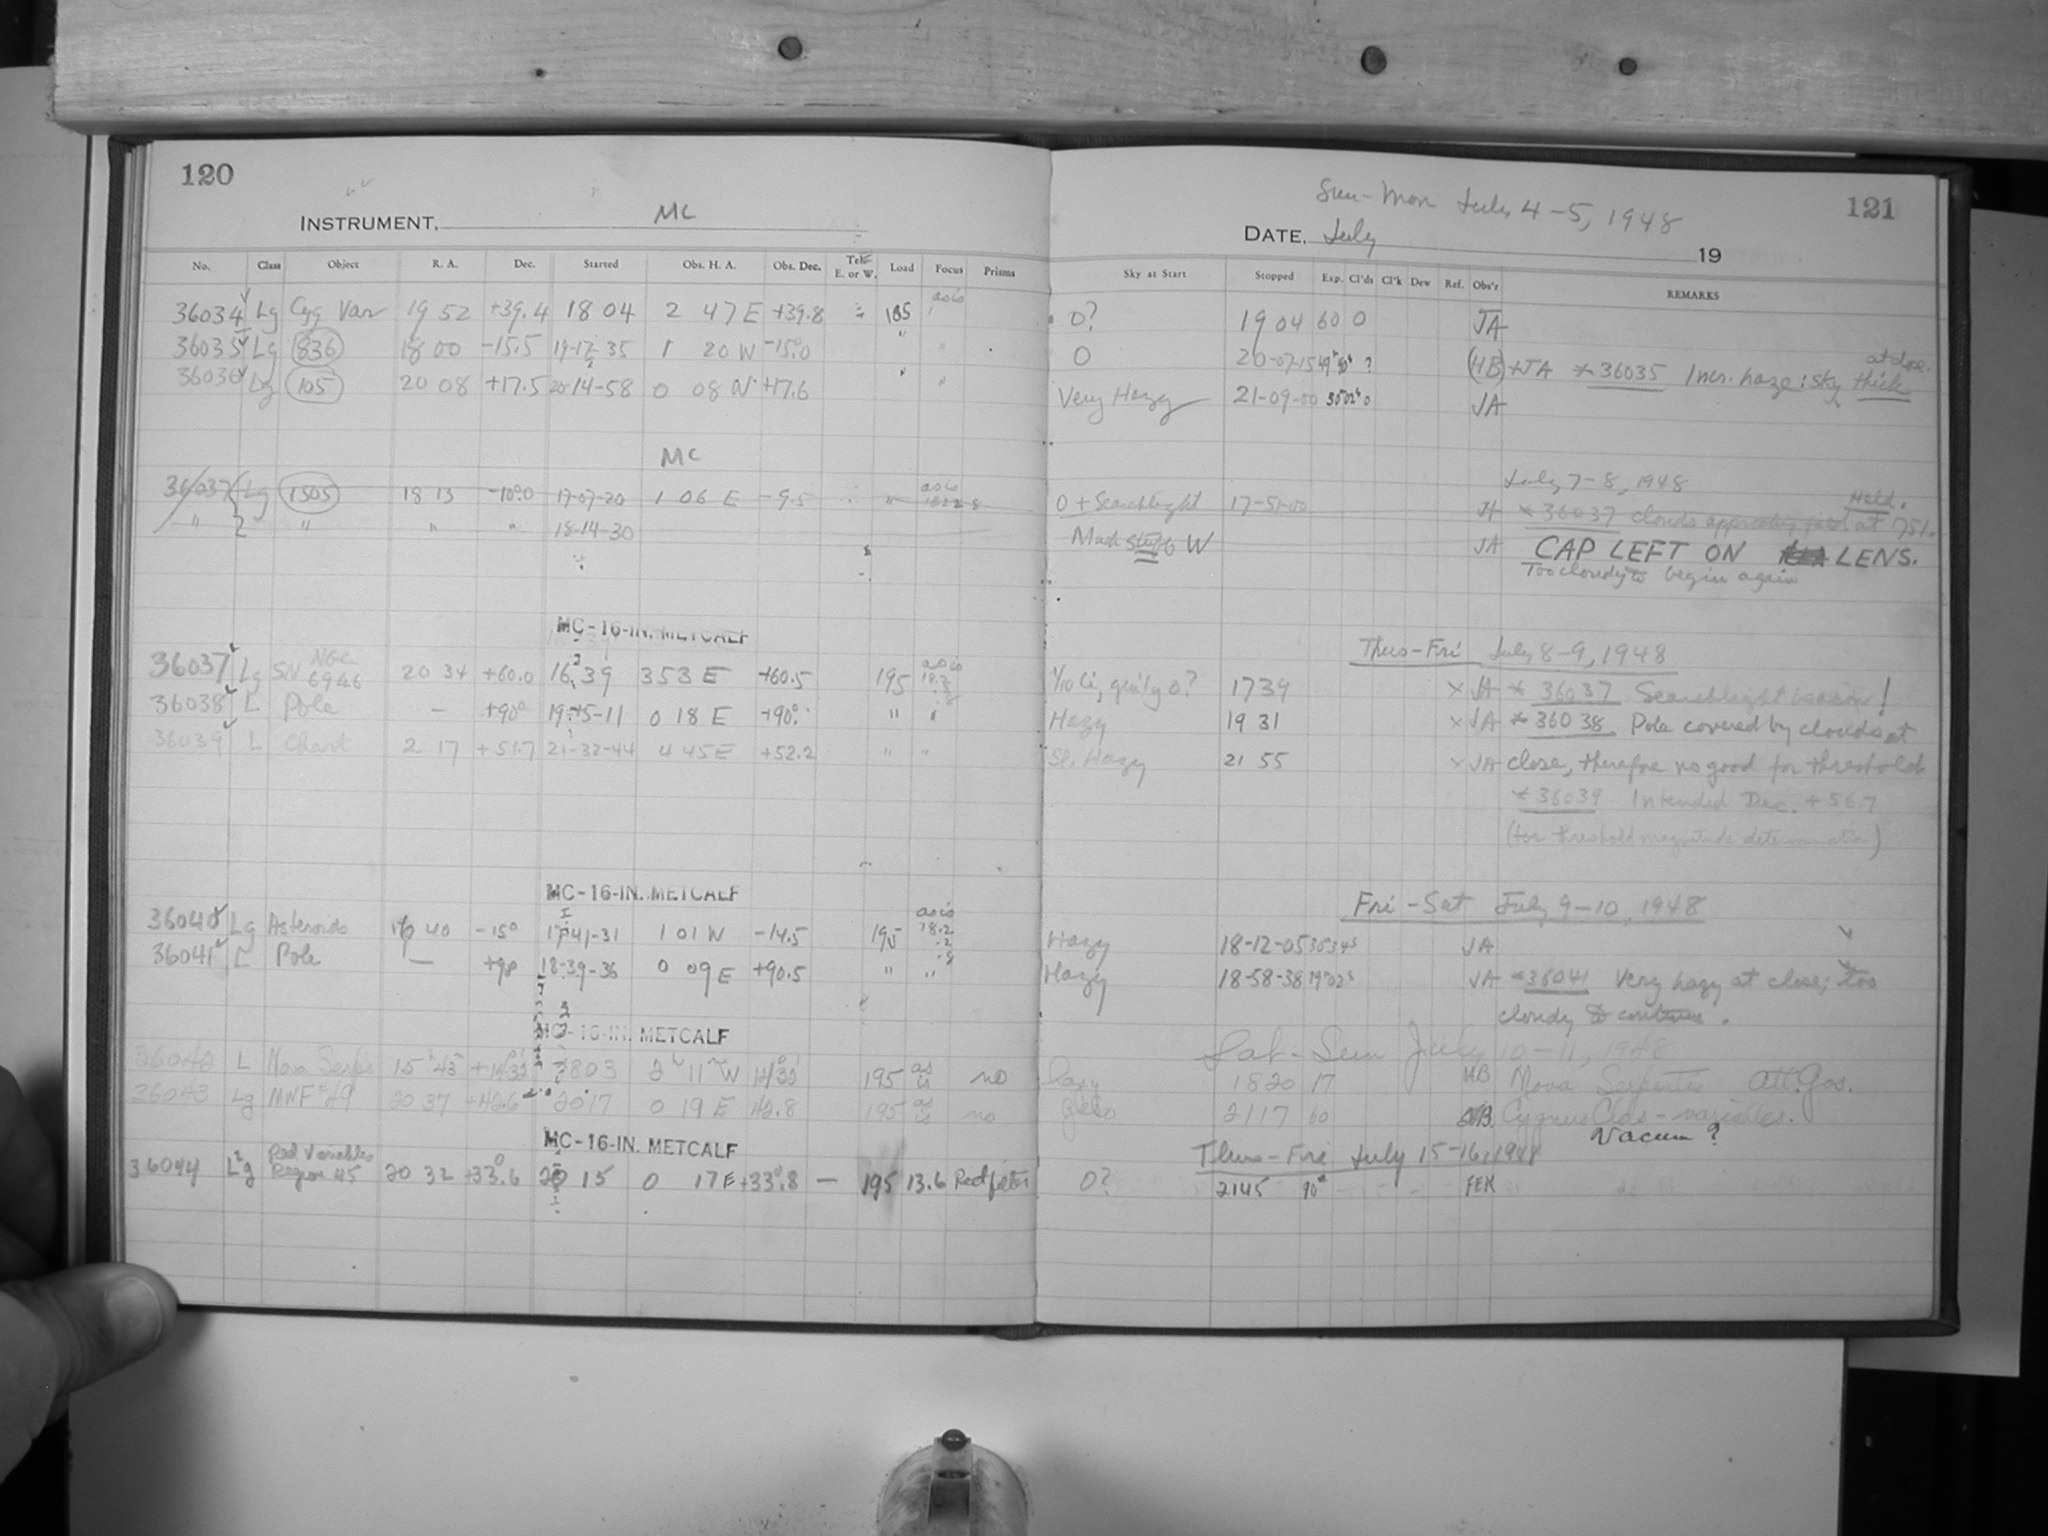 120
INSTRUMENT, MC
No. Class Object R. A. Dec. Started Obs. H. A. Obs. Dec. Tel. E. or W. Load Focus Prisms
36034 Lg Cyg Var 19 52 +39.4 18 04 2 47 E +39.8 185 as is
36035 Lg 836 18 00 -15.5 19-17-35 1 20 W -15.0 "
36036 Lg 105 20 08 +17.5 20-14-58 0 08 W +17.6 " "
MC
36037 Lg 1505 18 13 -10.0 17-07-20 1 06 E -9.5 " as is
" " " " 18-14-30
MC-16-IN. METCALF
36037 Lg SN NGC 6946 20 34 +60.0 16 39 353 E +60.5 195 as is
36038 L Pole — +90° 19-15-11 0 18 E +90° " "
36039 L Chart 2 17 +51.7 21-32-44 4 45 E +52.2 " "
MC-16-IN. METCALF
36040 Lg Asteroids 40 -15° 17-41-31 1 01 W -14.5 195 as is 18.2
36041 L Pole — +90 18-39-36 0 09 E +90.5 " "
MC-16-IN. METCALF
36042 L Nova Serp's 15 43 1803 2 11 W 195 as is no
36043 Lg MNF #49 20 37 +42.6 2017 0 19 E 42.8 195 as is no
MC-16-IN. METCALF
36044 Lg Red Variables Region 45 20 32 +33.6 20 15 0 17 E +33.8 — 195 13.6 Red filter
121
Sun-Mon July 4-5, 1948
DATE, July 19
Sky at Start Stopped Exp. Cl'ds Cl'k Dew Ref. Obs'r REMARKS
0? 19 04 60 0 JA
0 20-07-15 ? (HB)+JA * 36035 Incr. haze: sky thick at close.
Very Hazy 21-09-00 0 JA
July 7-8, 1948
0 + Searchlight 17-51-00 JA * 36037 clouds at 1751. Held.
Much W JA CAP LEFT ON LENS.
Too cloudy to begin again
Thurs-Fri July 8-9, 1948
1/10 Ci, 0? 1739 × JA * 36037 Searchlight beacon!
Hazy 19 31 × JA * 36038 Pole covered by clouds at
Sl. Hazy 21 55 × JA close, therefore no good for threshold
* 36039 Intended Dec. +56.7
(for threshold magnitude determination)
Fri-Sat July 9-10, 1948
Hazy 18-12-05 JA
Hazy 18-58-38 19m02s JA * 36041 Very hazy at close; too
cloudy to continue.
Sat-Sun July 10-11, 1948
hazy 1820 17 HB Nova Serpentis
2117 60 HB Cygnus Clds-variables.
Vacuum?
Thurs-Fri July 15-16, 1948
0? 2145 90m FEK